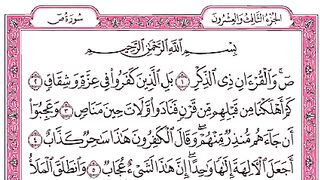 سُورَةُ صٓ الجُزْءُ الثَّالِثُ وَالعِشْرُونَ
بِسْمِ اللَّهِ الرَّحْمَٰنِ الرَّحِيمِ
صٓ ۚ وَالْقُرْءَانِ ذِي الذِّكْرِ ١ بَلِ الَّذِينَ كَفَرُوا فِي عِزَّةٍ وَشِقَاقٍ ٢
كَمْ أَهْلَكْنَا مِن قَبْلِهِم مِّن قَرْنٍ فَنَادَوا وَّلَاتَ حِينَ مَنَاصٍ ٣ وَعَجِبُوٓا
أَن جَآءَهُم مُّنذِرٌ مِّنْهُمْ ۖ وَقَالَ الْكَٰفِرُونَ هَٰذَا سَٰحِرٌ كَذَّابٌ ٤
أَجَعَلَ الْءَالِهَةَ إِلَٰهًا وَٰحِدًا ۖ إِنَّ هَٰذَا لَشَىْءٌ عُجَابٌ ٥ وَانطَلَقَ الْمَلَأُ